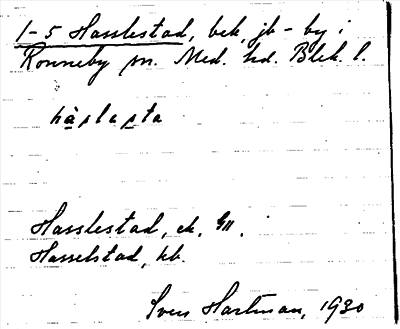 1-5 Hasslestad, bek, jb-by i
Ronneby sn. Med. hd. Blek. l.
hàslasta
Hasslestad, ek. GH.
Hasselstad, kb.
Sven Hartman, 1930